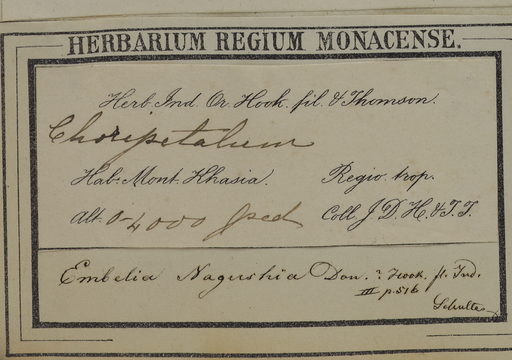 HERBARIUM REGIUM MONACENSE.
Herb. Ind. Or. Hook. fil. & Thomson.
Choripetalum
Hab. Mont. Khasia. Regio. trop.
Alt. 0-4000 ped Coll. J. D. H. & T. T.
Embelia Nagushia Don. ? Hook. fl. Ind.
III p. 516